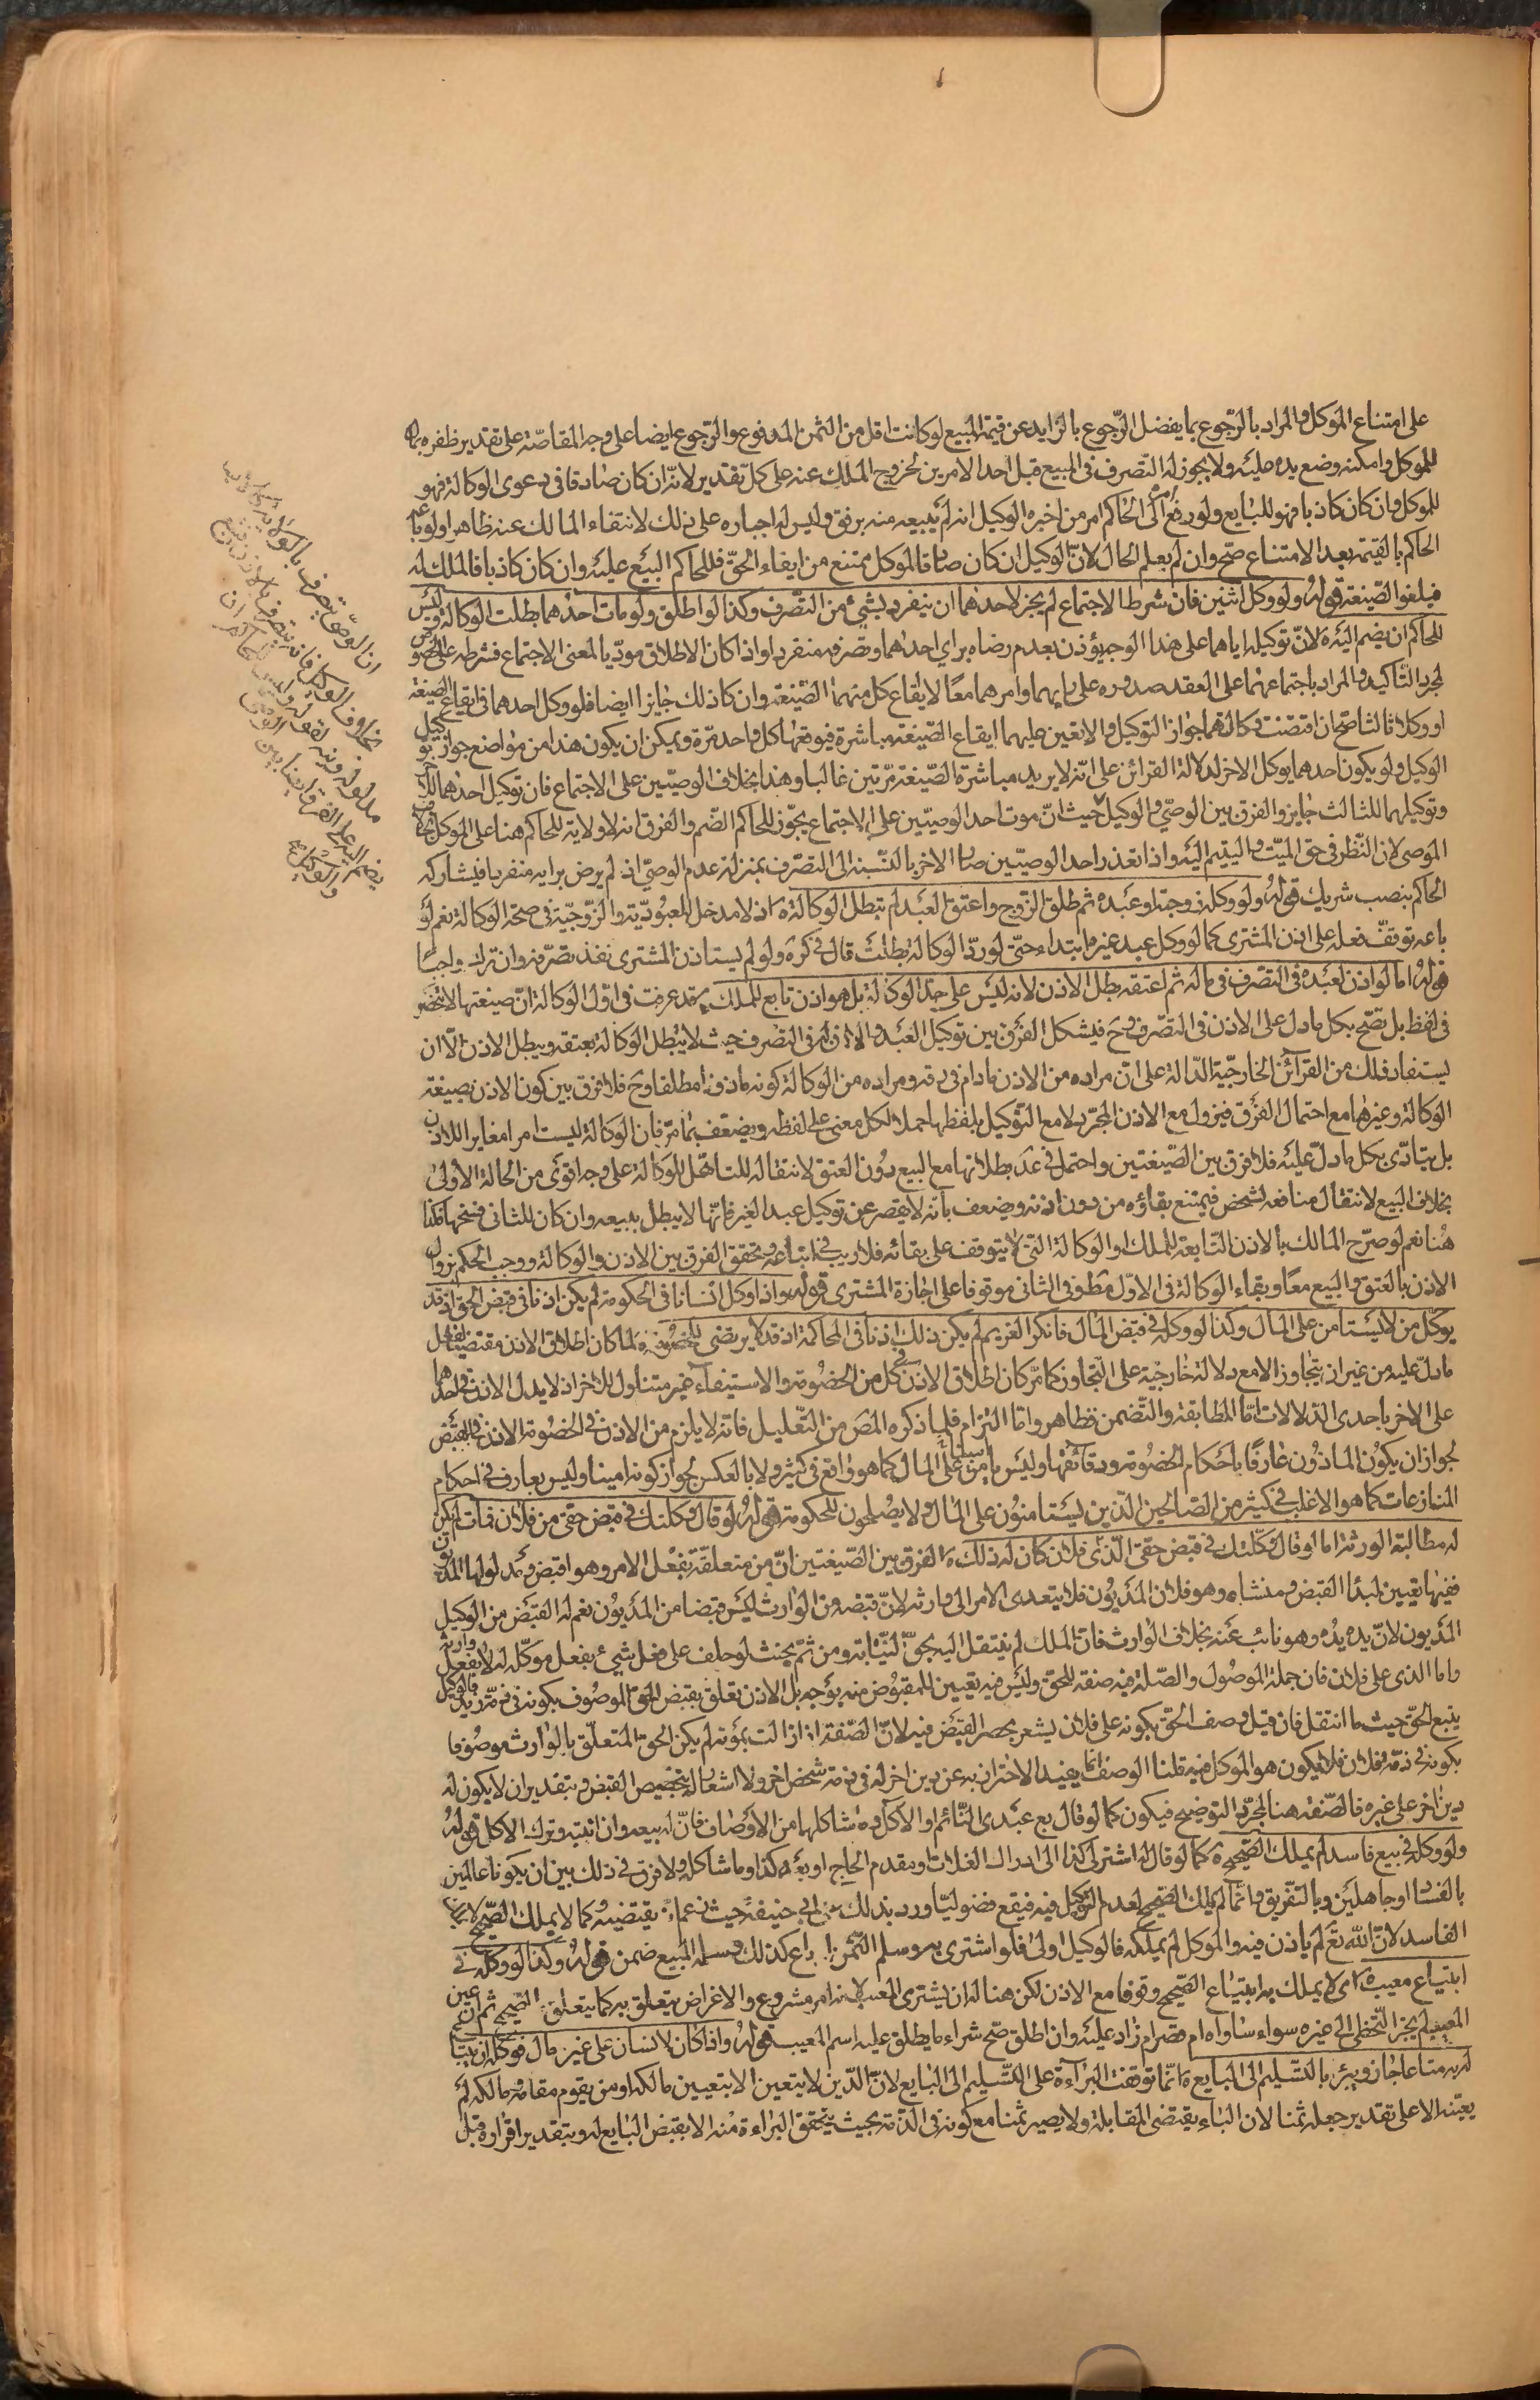 على امتناع الموكل والمراد بالرجوع بما يفضل الرجوع بالزايد عن قيمة المبيع لو كانت اقل من الثمن المدفوع والرجوع ايضا على وجه المقاصّة على تقدير ظفره بمال
للموكل وامكنه وضع يده عليه ولا يجوز له التصرف في المبيع قبل احد الامرين لخروج الملك عنه على كل تقدير لانه ان كان صادقا في دعوى الوكالة فهو
للموكل وان كان كاذبا فهو للبايع ولو رفع امره الى الحاكم امر من اخبره الوكيل انه لم يبيعه منه برفق وليس له اجباره على ذلك لانتفاء المالك عنه ظاهرا ولو باعه
الحاكم بالقيمة بعد الامتناع صح وان لم يعلم الحال لانّ الوكيل ان كان صادقا فالموكل ممتنع من ايفاء الحقّ فللحاكم البيع عليه وان كان كاذبا فالملك له
فيلغوا الصّيغة قوله ولو وكل اثنين فان شرط الاجتماع لم يجز لاحدهما ان ينفرد بشيء من التصّرف وكذا لو اطلق ولو مات احدهما بطلت الوكالة وليس
للحاكم ان يضم اليه لانّ توكيله اياهما على هذا الوجه يؤذن بعدم رضاه براي احدهما وتصرفه منفردا واذا كان الاطلاق مودّيا لمعنى الاجتماع فشرطه على الخصوص
لمجرد التّاكيد والمراد باجتماعهما على العقد صدوره على رايهما وامرهما معًا لا ايقاع كل منهما الصّيغة وان كان ذلك جايزا ايضا فلو وكل احدهما في ايقاع الصيغة
او وكلا ثالثا صح ان اقتضت وكالتهما جواز التوكيل والا تعين عليهما ايقاع الصّيغة مباشرة فيوقعها كل واحد مرّة ويمكن ان يكون هذا من مواضع جواز توكيل
الوكيل ولو يكون احدهما يوكل الاخر لدلالة القرائن على انّه لا يريد مباشرة الصّيغة مرّتين غالبا وهذا بخلاف الوصيّين على الاجتماع فان توكيل احدهما للاخر
وتوكيلهما للثالث جايز والفرق بين الوصيّ والوكيل حيث انّ موت احد الوصيّين على الاجتماع يجوّز للحاكم الضّم والفرق انه لا ولاية للحاكم هنا على الموكل بخلاف
الموصى لان النّظر في حق الميّت واليتيم اليه واذا تعذر احد الوصيّين صار الاخر بالنّسبة الى التصرّف بمنزلة عدم الوصيّ اذ لم يرض برايه منفردا فيشاركه
الحاكم بنصب شريك قوله ولو وكل زوجته او عبده ثم طلق الزوج واعتق العبد لم تبطل الوكالة اذ لا مدخل للعبوديّة والزوجيّة في صحة الوكالة نعم لو
باعه توقف فعله على اذن المشترى كما لو وكل عبد غيره ابتداء حتّى لو ردّ الوكالة بطلت قال في كره ولو لم يستاذن المشترى نفذ تصرّفه وان ترك واجبًا
قوله اما لو اذن لعبده في التصرّف في ماله ثم اعتقه بطل الاذن لانه ليس على حدّ الوكالة بل هو اذن تابع للملك قد عرفت في اول الوكالة انّ صيغتها لا تنحصر
في لفظ بل تصّح بكل ما دل على الاذن في التصّرف وح فيشكل الفرق بين توكيل العبد والاذن له في التصرف حيث لا يبطل الوكالة بعتقه ويبطل الاذن الّا ان
يستفاد ذلك من القرآئن الخارجيّة الدّالة على انّ مراده من الاذن مادام في رقه ومراده من الوكالة كونه ماذونا مطلقا وح فلا فرق بين كون الاذن بصيغة
الوكالة وغيرها مع احتمال الفرق فيزول مع الاذن المجرّد لا مع التّوكيل بلفظها حملا لكل معنى على لفظه ويضعّف بما مرّ فان الوكالة ليست امرا مغايرا للاذن
بل يتادّى بكل ما دلّ عليه فلا فرق بين الصّيغتين واحتمل في عد بطلانها مع البيع دون العتق لانتقاله للتاهّل للوكالة على وجه اقوى من الحالة الأولى
بخلاف البيع لانتقال منافعه لشخص فيمتنع بقاؤه من دون اذنه ويضعف بأنّه لا يقصر عن توكيل عبد الغير فانّها لا يبطل ببيعه وان كان للثانى فسخها فكذا
هنا نعم لو صرّح المالك بالاذن التّابعة للملك او الوكالة التى لا يتوقف على بقائه فلا ريب في اتباعه وتحقق الفرق بين الاذن والوكالة ووجب الحكم بزوال
الاذن بالعتق والبيع معًا وبقاء الوكالة في الاوّل مط وفي الثانى موقوفا على اجازة المشترى قوله واذا وكل انسانا في الحكومة لم يكن اذنا في قبض الحق اذ قد
يوكّل من لا يستامن على المال وكذا لو وكله في قبض المال فانكر الغريم لم يكن ذلك اذنا في المحاكمة اذ قد لا يرتضى للخصومة لما كان اطلاق الاذن مقتضيا لفعل
ما دلّ عليه من غير ان يتجاوز الا مع دلالة خارجيّة على التّجاوز كما مرّ كان اطلاق الاذن في كل من الخصومة والاستيفآء غير متناول للاخر اذ لا يدل الاذن في احدهما
على الاخر باحدى الدّلالات امّا المطابقة والتّضمن فظاهر واما التزام فلما ذكره المص من التّعليل فانه لا يلزم من الاذن في الخصومة الاذن في القبض
لجواز ان يكون الماذون عارفًا بأحكام الخصومة ودقائقها وليس بامين على المال كما هو واقع في كثير ولا بالعكس لجواز كونه امينا وليس بعارف في احكام
المنازعات كما هو الاغلب في كثير من الصّالحين الّذين يستامنون على المال ولا يصلحون للحكومة قوله لو قال وكلتك في قبض حقى من فلان فمات لم يكن
له مطالبة الورثة اما لو قال وكّلتك في قبض حقّى الّذى على فلان كان له ذلك الفرق بين الصّيغتين انّ من متعلّقة بفعل الامر وهو اقبض ومدلولها المديون
ففيها تعيين لمبدأ القبض ومنشاه وهو فلان المديون فلا يتعدى الامر الى وارثه لانّ قبضه من الوارث ليس قبضا من المديون نعم له القبض من الوكيل
المديون لانّ يده يده وهو نائبٌ عنه بخلاف الوارث فانّ الملك لم ينتقل اليه بحقّ النّيابة ومن ثمّ يحنث لو حلف على فعل شيء بفعل موكّله له لا بفعل وارثه
واما الذى على فلان فان جملة الموصول والصّلة فيه صفة للحق وليس فيه تعيين للمقبوض منه بوجه بل الاذن تعلّق بقبض الحق الموصوف بكونه في ذمّة زيد فالوكيل
يتبع الحق حيث ما انتقل فان قيل وصف الحقّ بكونه على فلان يشعر بحصر القبض فيه لانّ الصّفة اذا زالت بموته لم يكن الحق المتعلّق بالوارث موصوفا
بكونه في ذمّة فلان فلا يكون هو الموكل فيه قلنا الوصف انما يفيد الاحتراز به عن دين اخر له في ذمة شخص اخر ولا اشعار له بتخصيص القبض وبتقدير ان لا يكون له
دين اخر على غيره فالصّفة هنا لمجرّد التوضيح فيكون كما لو قال بع عبدى النّائم او الآكل وما شاكلها من الأوصاف فانّ له بيعه وان انتبه وترك الاكل قوله
ولو وكله في بيع فاسد لم يملك الصّحيح كما لو قال له اشتر لى كذا الى ادراك الغلات او مقدم الحاج او بعه كذا وما شاكله ولا فرق في ذلك بين ان يكونا عالمين
بالفساد او جاهلين وبالتفريق وانّما لم يملك الصّحيح لعدم التوكيل فيه فيقع فضوليّا ورد بذلك على ابى حنيفة حيث زعم انه يقتضيه وكما لا يملك الصّحيح لا يملك
الفاسد لانّ الله تع لم ياذن فيه والموكل لم يملكه فالوكيل اولى فلو اشترى به وسلم الثّمن او باع كذلك وسلم المبيع ضمن قوله وكذا لو وكله في
ابتياع معيب اى لا يملك به ابتياع الصّحيح وقوفا مع الاذن لكن هنا له ان يشترى المعيب لانه امر مشروع والاغراض يتعلق به كما يتعلق بالصّحيح ثم ان عين
المعيب لم يجز التّخطى الى غيره سواء ساواه ام قصر ام زاد عليه وان اطلق صح شراء ما يطلق عليه اسم المعيب قوله واذا كان لانسان على غيره مال فوكله ان يبتاع
له به متاعا جاز ويبرء بالتّسليم الى البايع انّما توقفت البراءة على التّسليم الى البايع لانّ الدّين لا يتعين الا بتعيين مالكه او من يقوم مقامه مالكه لم
يعيّنه الا على تقدير جعله ثمنا لان الباء يقتضى المقابلة ولا يصير ثمنا مع كونه في الذّمة بحيث يتحقق البراءة منه الا بقبض البايع له وبتقدير اقراره قبل
ان الوصىّ يتصرف بالولاية